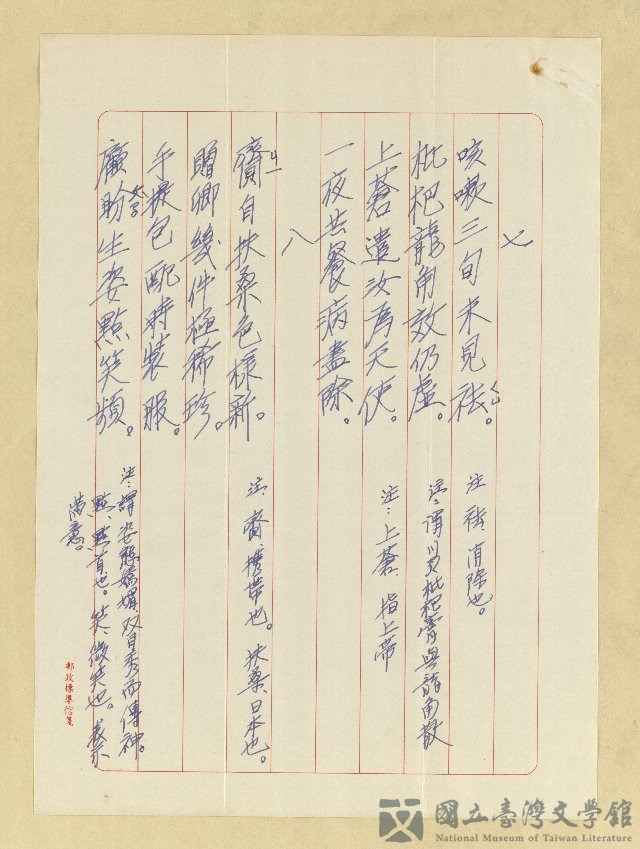 七
咳嗽三旬未見祛。
枇杷龍角效仍虛。
上蒼遣汝為天使。
一夜共餐病盡除。
八
自扶桑色樣新。
贈卿幾件極稀珍。
手提包配時裝服。
顧盼坐姿點笑頻。
注、祛、消除也。
注、謂以枇杷膏與龍角散
注：上蒼、指上帝
注、齎、携帶也。扶桑、日本也。
注：謂姿態嬌媚、双目秀而傳神。
點、點首也。笑、微笑也。表示
滿意。
郵政標準信箋
國立臺灣文學館
National Museum of Taiwan Literature